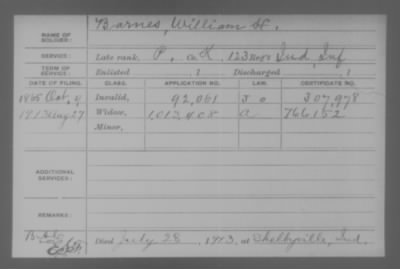 NAME OF SOLDIER: Barnes, William H.
SERVICE: Late rank, P, Co. K, 123 Reg't Ind. Inf.
TERM OF SERVICE: Enlisted , 1 Discharged , 1
DATE OF FILING. CLASS. APPLICATION NO. LAW. CERTIFICATE NO.
1865 Oct. 9 Invalid, 92,061 307,978
1913 Aug 27 Widow, 1,013,408 766152
Minor,
ADDITIONAL SERVICES:
REMARKS:
Died July 28, 1913, at Shelbyville, Ind.